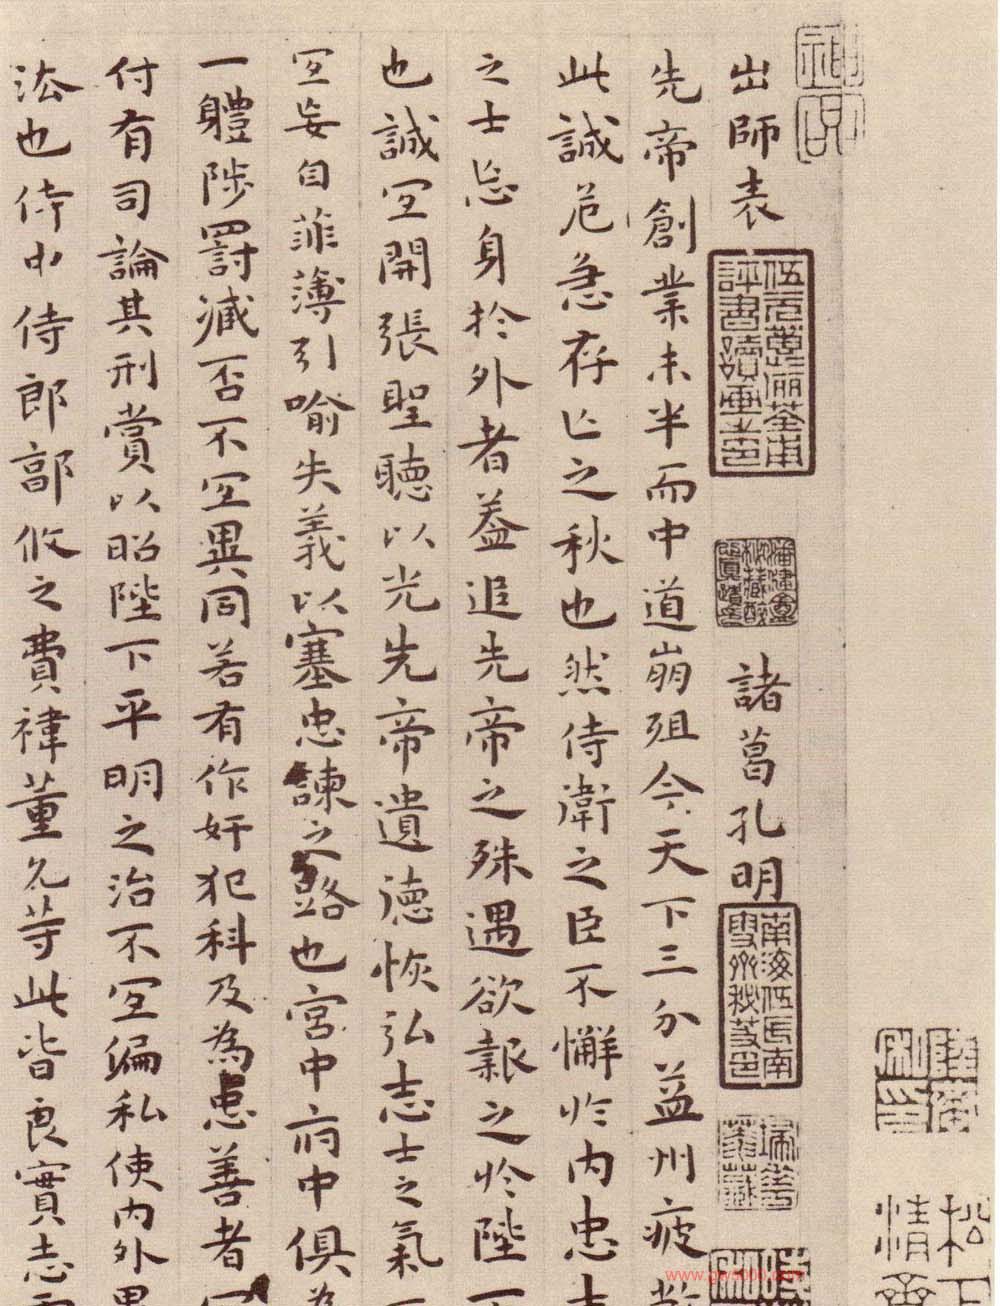 出師表 諸葛孔明
先帝創業未半而中道崩殂今天下三分益州疲
此誠危急存亡之秋也然侍衛之臣不懈於内忠
之士忘身於外者蓋追先帝之殊遇欲報之於陛
也誠宜開張聖聽以光先帝遺德恢弘志士之氣
宜妄自菲薄引喻失義以塞忠諫之路也宮中府中俱為
一體陟罰臧否不宜異同若有作奸犯科及為忠善者
付有司論其刑賞以昭陛下平明之治不宜偏私使内外異
法也侍中侍郎郭攸之費禕董允等此皆良實志
南海伍氏南雪齋秘笈印